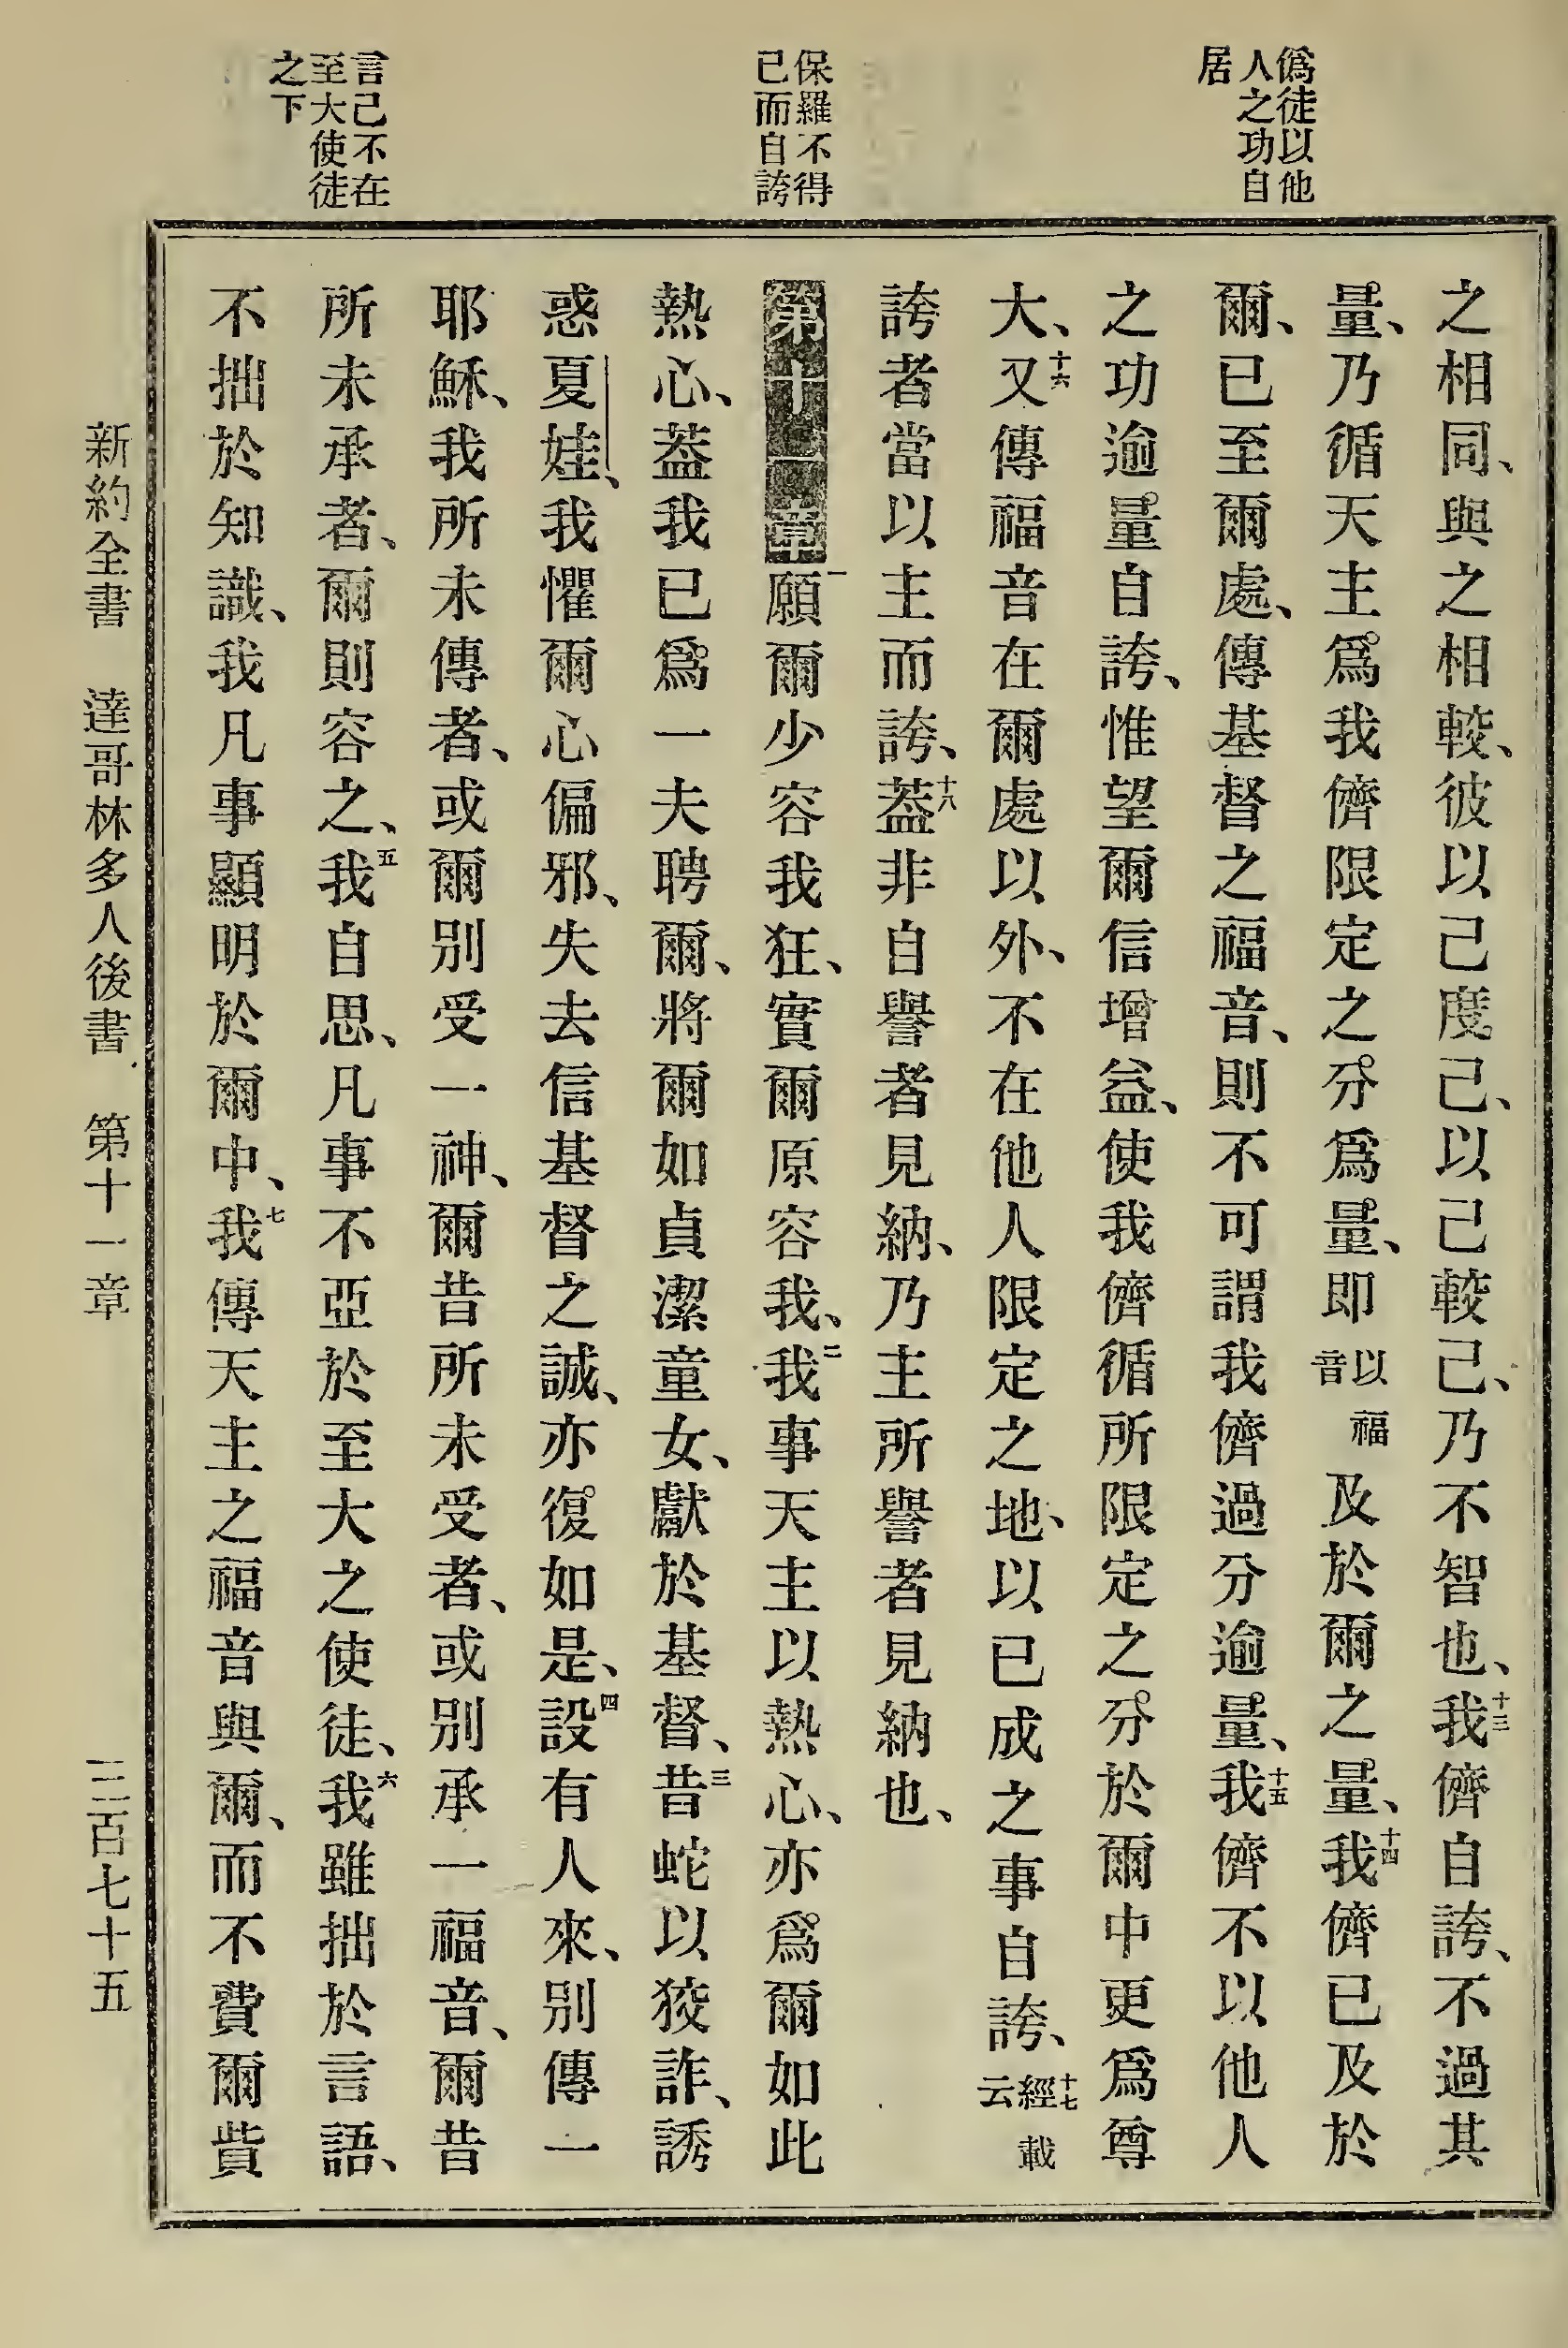 僞徒以他
人之功自
居
保羅不得
已而自誇
言己不在
至大使徒
之下
之相同、與之相較、彼以己度己、以己較己、乃不智也、十三我儕自誇、不過其
量、乃循天主爲我儕限定之分爲量、卽以福音及於爾之量、十四我儕已及於
爾、已至爾處、傳基督之福音、則不可謂我儕過分逾量、十五我儕不以他人
之功逾量自誇、惟望爾信增益、使我儕循所限定之分於爾中更爲尊
大、十六又傳福音在爾處以外、不在他人限定之地、以已成之事自誇、十七經載云
誇者當以主而誇、十八蓋非自譽者見納、乃主所譽者見納也、
第十一章一願爾少容我狂、實爾原容我、二我事天主以熱心、亦爲爾如此
熱心、蓋我已爲一夫聘爾、將爾如貞潔童女、獻於基督、三昔蛇以狡詐、誘
惑夏娃、我懼爾心偏邪、失去信基督之誠、亦復如是、四設有人來、別傳一
耶穌、我所未傳者、或爾別受一神、爾昔所未受者、或別承一福音、爾昔
所未承者、爾則容之、五我自思、凡事不亞於至大之使徒、六我雖拙於言語、
不拙於知識、我凡事顯明於爾中、七我傳天主之福音與爾、而不費爾貲
新約全書 達哥林多人後書 第十一章 三百七十五